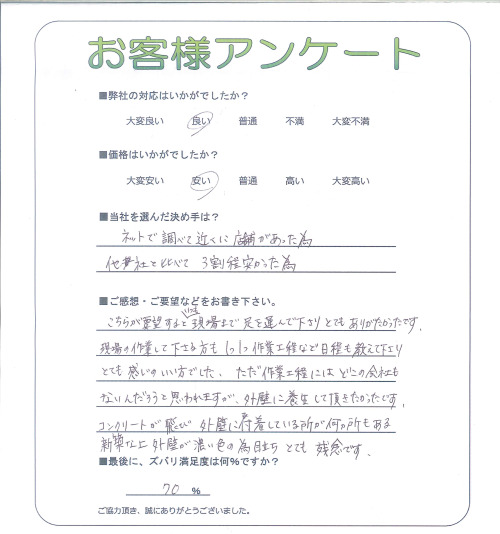 お客様アンケート
■弊社の対応はいかがでしたか？
大変良い 良い 普通 不満 大変不満
■価格はいかがでしたか？
大変安い 安い 普通 高い 大変高い
■当社を選んだ決め手は？
ネットで調べて近くに店舗があった為
他業社と比べて 3割程安かった為
■ご感想・ご要望などをお書き下さい。
いつも
こちらが要望すると現場まで足を運んで下さりとてもありがたかったです。
現場の作業して下さる方も1つ1つ作業工程など日程も教えて下さり
とても感じのいい方でした。ただ作業工程にはどこの会社も
ないんだろうと思われますが、外壁に養生して頂きたかったです。
コンクリートが飛び 外壁に付着している所が何ヶ所もある
新築な上 外壁が濃い色の為目立ち とても 残念です。
■最後に、ズバリ満足度は何%ですか？
70 %
ご協力頂き、誠にありがとうございました。